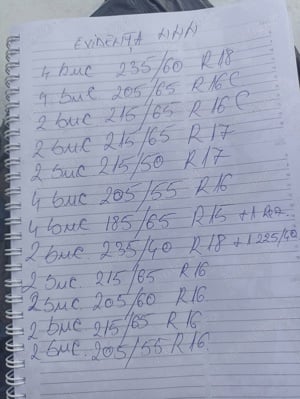 EVIDENȚA
4 buc 235/60 R 18
4 buc. 205/65 R 16 C
2 buc 215/65 R 16 C
2 buc 215/65 R 17
2 buc 215/50 R 17
4 buc 205/55 R 16
4 buc 185/65 R 15 + 1
2 buc. 235/40 R 18 + 1 225/40
2 buc. 215/65 R 16
2 buc. 205/60 R 16
2 buc. 215/65 R 16
2 buc. 205/55 R 16